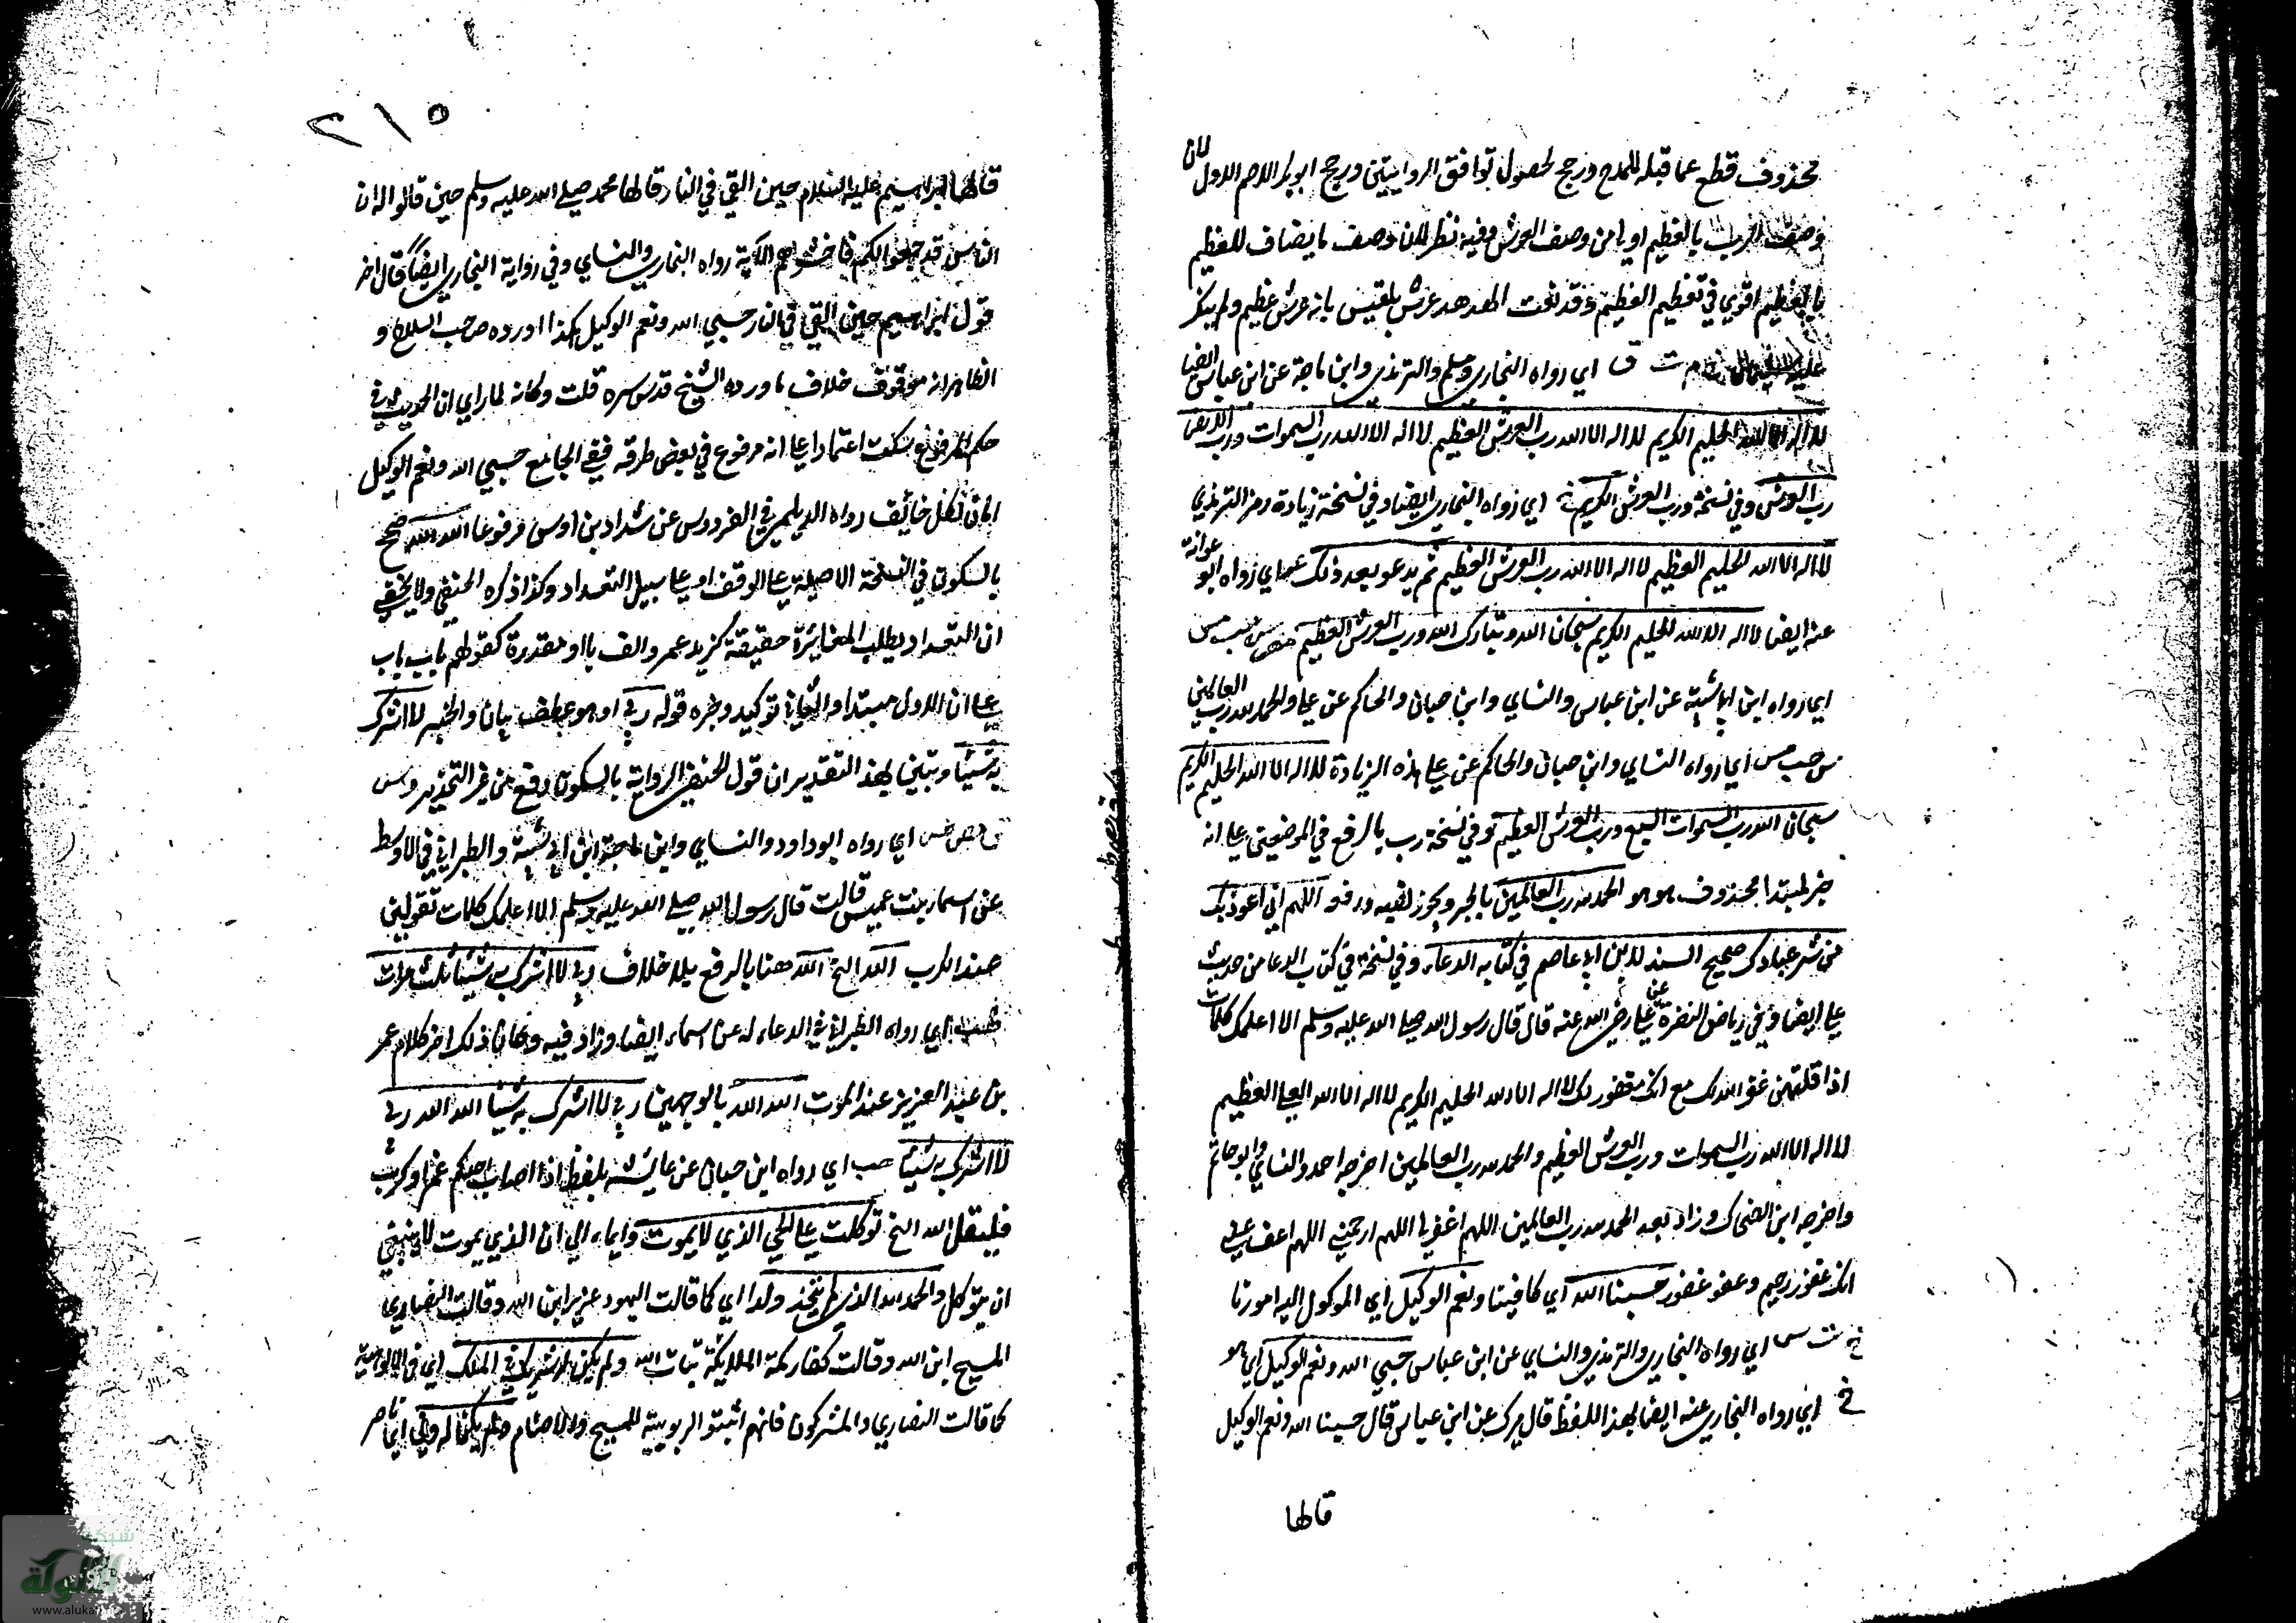 محذوف قطع عما قبله للمدح ورجح لحصول توافق الروايتين ورجح ابو بكر الاصم الاول لان
وصف الرب بالعظيم اولى من وصف العرش وفيه نظر لان وصف ما يضاف للعظيم
بالعظيم اقوى في تعظيم العظيم وقد نعت الهدهد عرش بلقيس بانه عرش عظيم ولم ينكر
عليه سليمان خ م ت ق اي رواه البخاري ومسلم والترمذي وابن ماجة عن ابن عباس ايضا
لا اله الا الله الحليم الكريم لا اله الا الله رب العرش العظيم لا اله الا الله رب السموات ورب الارض
رب العرش وفي نسخة ورب العرش الكريم خ اي رواه البخاري ايضا وفي نسخة زيادة رمز الترمذي
لا اله الا الله الحليم العظيم لا اله الا الله رب العرش العظيم ثم يدعو بعد ذلك عو اي رواه ابو عوانة
عنه ايضا لا اله الا الله الحليم الكريم سبحان الله وتبارك الله ورب العرش العظيم مص س حب مس
اي رواه ابن ابي شيبة عن ابن عباس والنساي وابن حبان والحاكم عن علي والحمد لله رب العالمين
س حب مس اي رواه النساي وابن حبان والحاكم عن علي بهذه الزيادة لا اله الا الله الحليم الكريم
سبحان الله رب السموات السبع ورب العرش العظيم وفي نسخة رب بالرفع في الموضعين على انه
خبر لمبتدا محذوف هو هو الحمد لله رب العالمين بالجر ويجوز نصبه ورفعه اللهم اني اعوذ بك
من شر عبادك صحيح السند لابن ابي عاصم في كتابه الدعاء وفي نسخة في كتاب الدعا من حديث
علي ايضا وفي رياض النضرة عن علي رضي الله عنه قال قال رسول الله صلى الله عليه وسلم الا اعلمك كلمات
اذا قلتهن غفر الله لك مع انك مغفور لك لا اله الا الله الحليم الكريم لا اله الا الله العلي العظيم
لا اله الا الله رب السموات ورب العرش العظيم والحمد لله رب العالمين اخرجه احمد والنساي وابو حاتم
واخرجه ابن الضحاك وزاد بعد الحمد لله رب العالمين اللهم اغفر لي اللهم ارحمني اللهم اعف عني
انك غفور رحيم وعفو غفور حسبنا الله اي كافينا ونعم الوكيل اي الموكول اليه امورنا
خ ت س اي رواه البخاري والترمذي والنساي عن ابن عباس حسبي الله ونعم الوكيل اي هو
خ اي رواه البخاري عنه ايضا بهذا اللفظ قال ميرك عن ابن عباس قال حسبنا الله ونعم الوكيل
قالها
٢١٥
قالها ابراهيم عليه السلام حين القي في النار وقالها محمد صلى الله عليه وسلم حين قالوا له ان
الناس قد جمعوا لكم فاخشوهم الآية رواه البخاري والنساي وفي رواية البخاري ايضا قال اخر
قول ابراهيم حين القي في النار حسبي الله ونعم الوكيل هكذا اورده صاحب السلاح و
الظاهر انه موقوف خلاف ما ورده الشيخ قدس سره قلت وكانه لما راي ان الحديث في
حكم المرفوع سكت اعتمادا على انه مرفوع في بعض طرقه ففي الجامع حسبي الله ونعم الوكيل
امان لكل خائف رواه الديلمي في الفردوس عن شداد بن اوس مرفوعا الله الله صح
بالسكون في النسخة الاصيلة على الوقف او على سبيل التعداد وكذا ذكره الحنفي ولا يخفى
ان التعداد يطلب المغايرة حقيقة كزيد عمرو الف با او مقدرة كقولهم باب باب
على ان الاول مبتدا والثاني توكيد وخبره قوله ربي او هو عطف بيان والخبر لا اشرك
به شيئا وتبين بهذا التقدير ان قول الحنفي الرواية بالسكون وقع من غير التحذير د س
ق مص طس اي رواه ابو داود والنساي وابن ماجة وابن ابي شيبة والطبراني في الاوسط
عن اسما بنت عميس قالت قال رسول الله صلى الله عليه وسلم الا اعلمك كلمات تقولين
عند الكرب الله الخ الله هنا بالرفع بلا خلاف ربي لا اشرك به شيئا ثلث مرات
طب اي رواه الطبراني في الدعاء له عن اسماء ايضا وزاد فيه وكان ذلك اخر كلام عمر
بن عبد العزيز عند الموت الله الله بالوجهين ربي لا اشرك به شيئا الله الله ربي
لا اشرك به شيئا حب اي رواه ابن حبان عن عايشه بلفظ اذا اصاب احدكم غم او كرب
فليقل الله الخ توكلت على الحي الذي لا يموت وايماء الى ان الذي يموت لا ينبغي
ان يتوكل والحمد لله الذي لم يتخذ ولدا اي كما قالت اليهود عزير ابن الله وقالت النصارى
المسيح ابن الله وقالت كفار مكة الملايكة بنات الله ولم يكن له شريك في الملك اي في الالوهية
كما قالت النصارى والمشركون فانهم اثبتوا الربوبية للمسيح والاصنام ولم يكن له ولي اي ناصر
شبكة
الألوكة
www.aluka